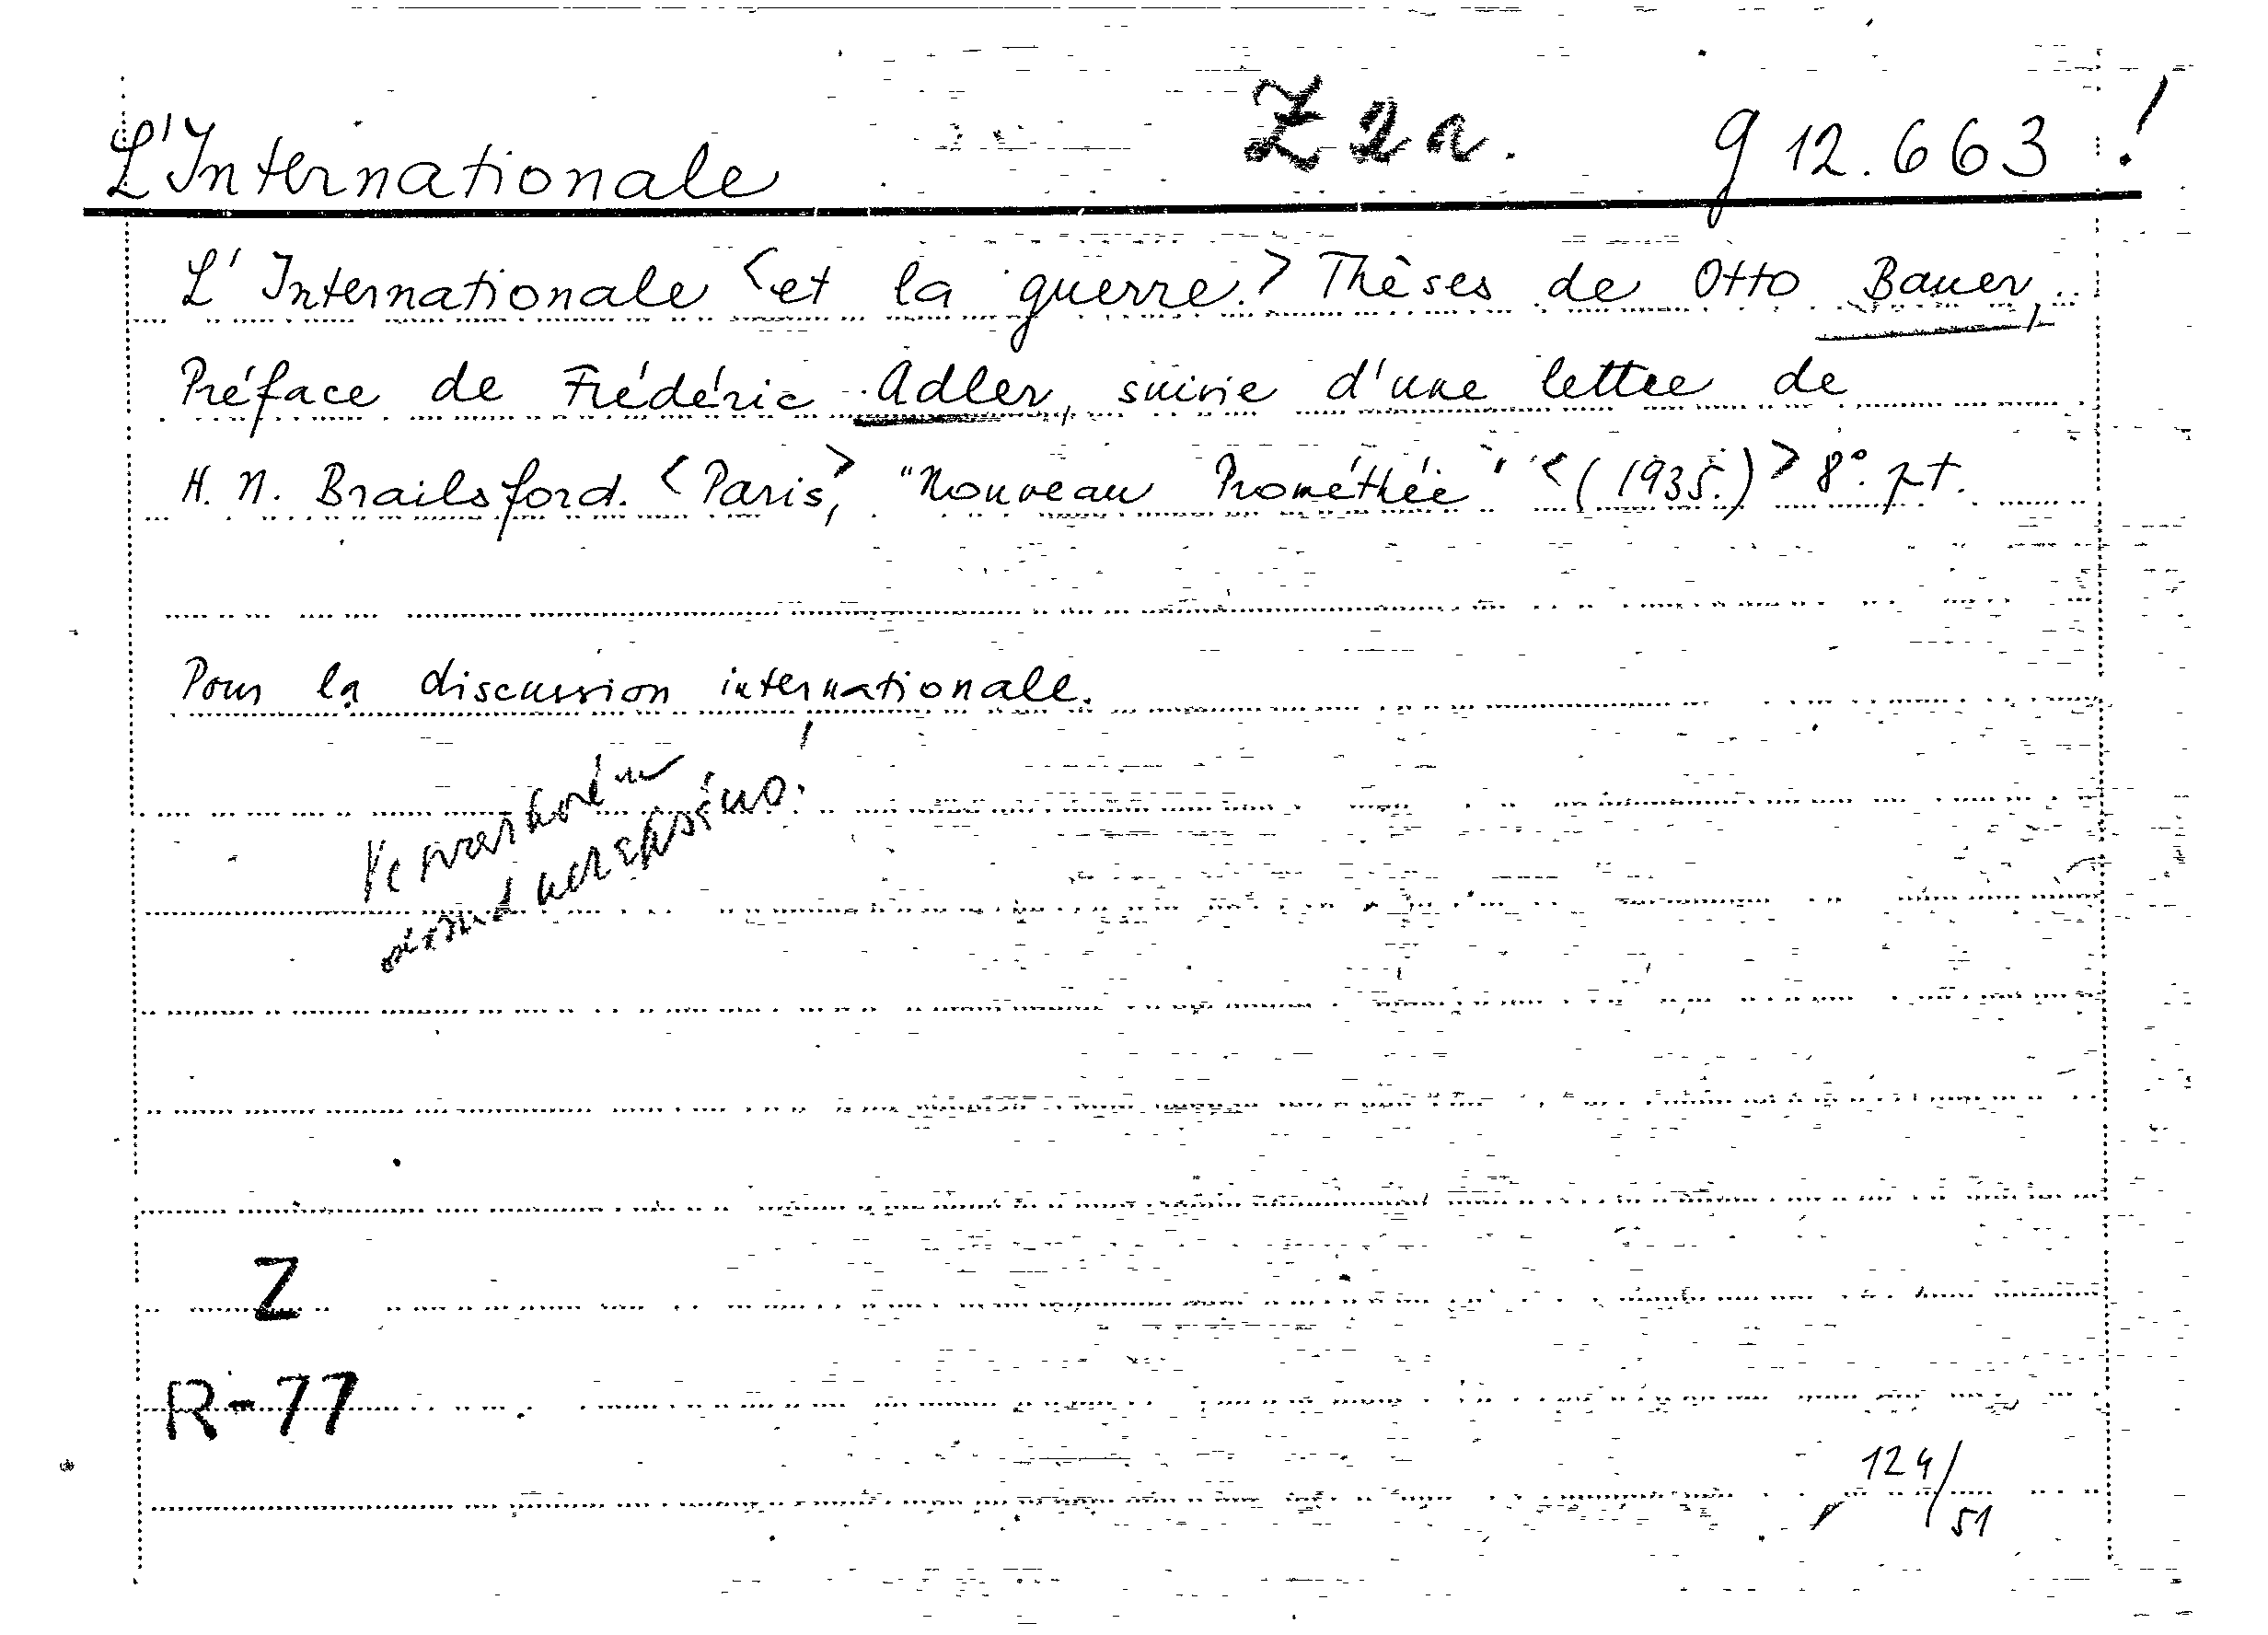 L'Internationale Z 2a. g 12.663!
L'Internationale <et la guerre.> Thèses de Otto Bauer,
Préface de Frédéric Adler, suivie d'une lettre de
H. N. Brailsford. <Paris,> "Nouveau Prométhée" <(1935.)> 8° pt.
Pour la discussion internationale.
Z
R-77
124/51